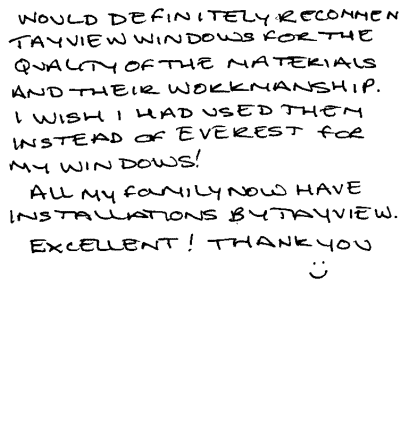 WOULD DEFINITELY RECOMMEN
TAYVIEW WINDOWS FOR THE
QUALITY OF THE MATERIALS
AND THEIR WORKMANSHIP.
I WISH I HAD USED THEM
INSTEAD OF EVEREST FOR
MY WINDOWS!
ALL MY FAMILY NOW HAVE
INSTALLATIONS BY TAYVIEW.
EXCELLENT! THANK YOU